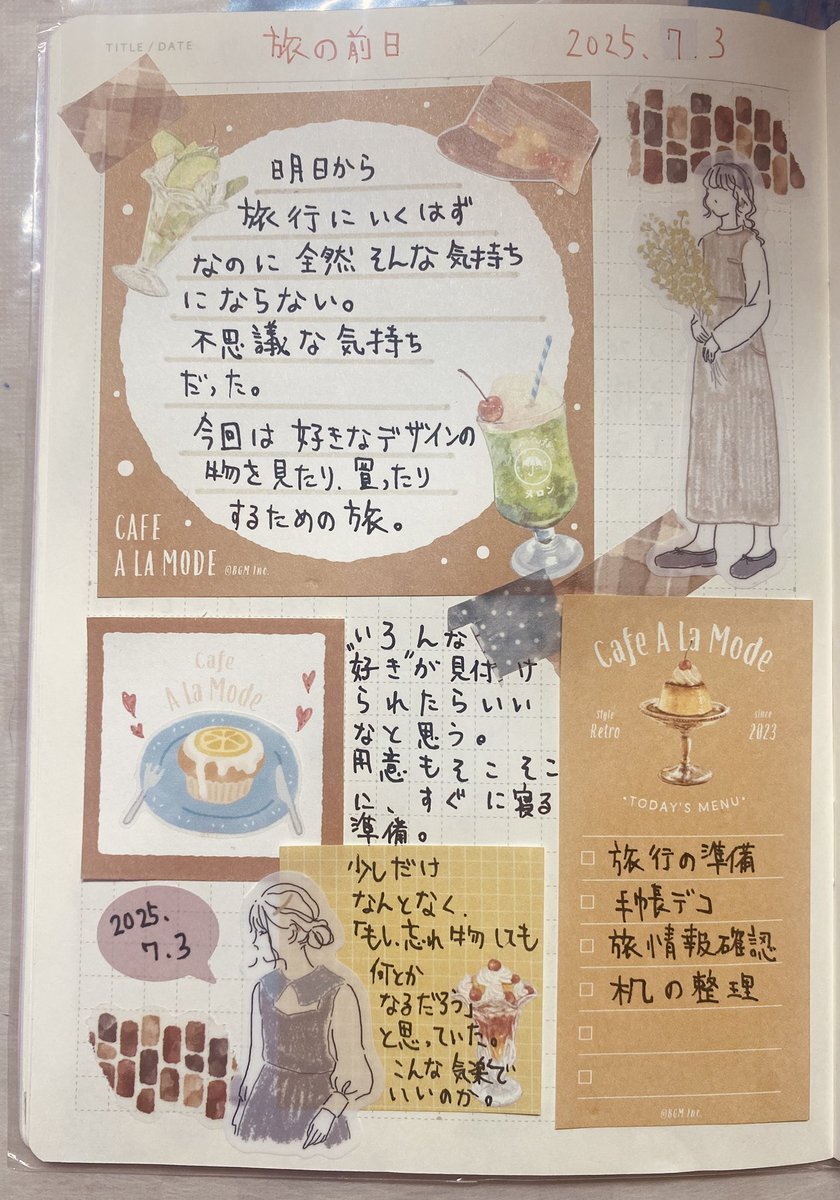 TITLE / DATE 旅の前日 / 2025.7.3
明日から
旅行にいくはず
なのに全然そんな気持ち
にならない。
不思議な気持ち
だった。
今回は好きなデザインの
物を見たり、買ったり
するための旅。
メロン
CAFE
A LA MODE ©BGM Inc.
Cafe
A La Mode
"いろんな
好き"が見付け
られたらいい
なと思う。
用意もそこそこ
に、すぐに寝る
準備。
少しだけ
なんとなく、
「もし、忘れ物しても
何とか
なるだろう」
と思っていた。
こんな気楽で
いいのか。
2025.
7.3
Cafe A La Mode
style
Retro
since
2023
"TODAY'S MENU"
旅行の準備
手帳デコ
旅情報確認
机の整理
©BGM Inc.